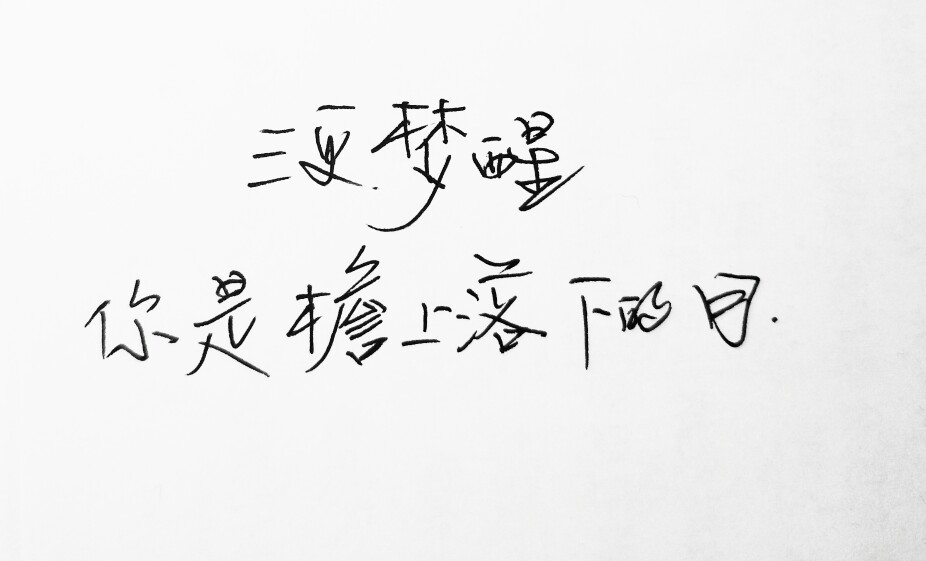 三更.梦醒
你是檐上落下的月.